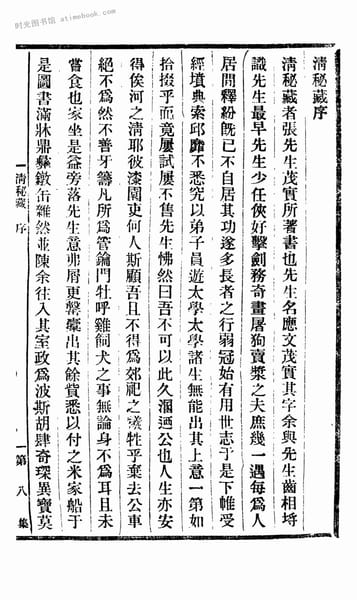 时光图书馆 atimebook.com
清秘藏序
清秘藏者張先生茂實所著書也先生名應文茂實其字余與先生齒相埒
識先生最早先生少任俠好擊劍務奇畫屠狗賣漿之夫庶幾一遇每爲人
居間釋紛旣已不自居其功遂多長者之行弱冠始有用世志于是下帷受
經墳典索邱靡不悉究以弟子員遊太學太學諸生無能出其上意一第如
拾掇乎而竟屢試屢不售先生怫然曰吾不可以此久溷迺公也人生亦安
得俟河之清耶彼漆園吏何人斯顧吾且不得爲郊祀之犧牲乎棄去公車
絕不爲然不善牙籌凡所爲管鑰門牡呼雞飼犬之事無論身不爲耳且未
嘗食也家坐是益旁落先生意弗屑更罄橐出其餘貲悉以付之米家船于
是圖書滿牀鼎彝敦缶雜然並陳余往入其室政爲波斯胡肆奇琛異寶莫
清秘藏 序
第八集